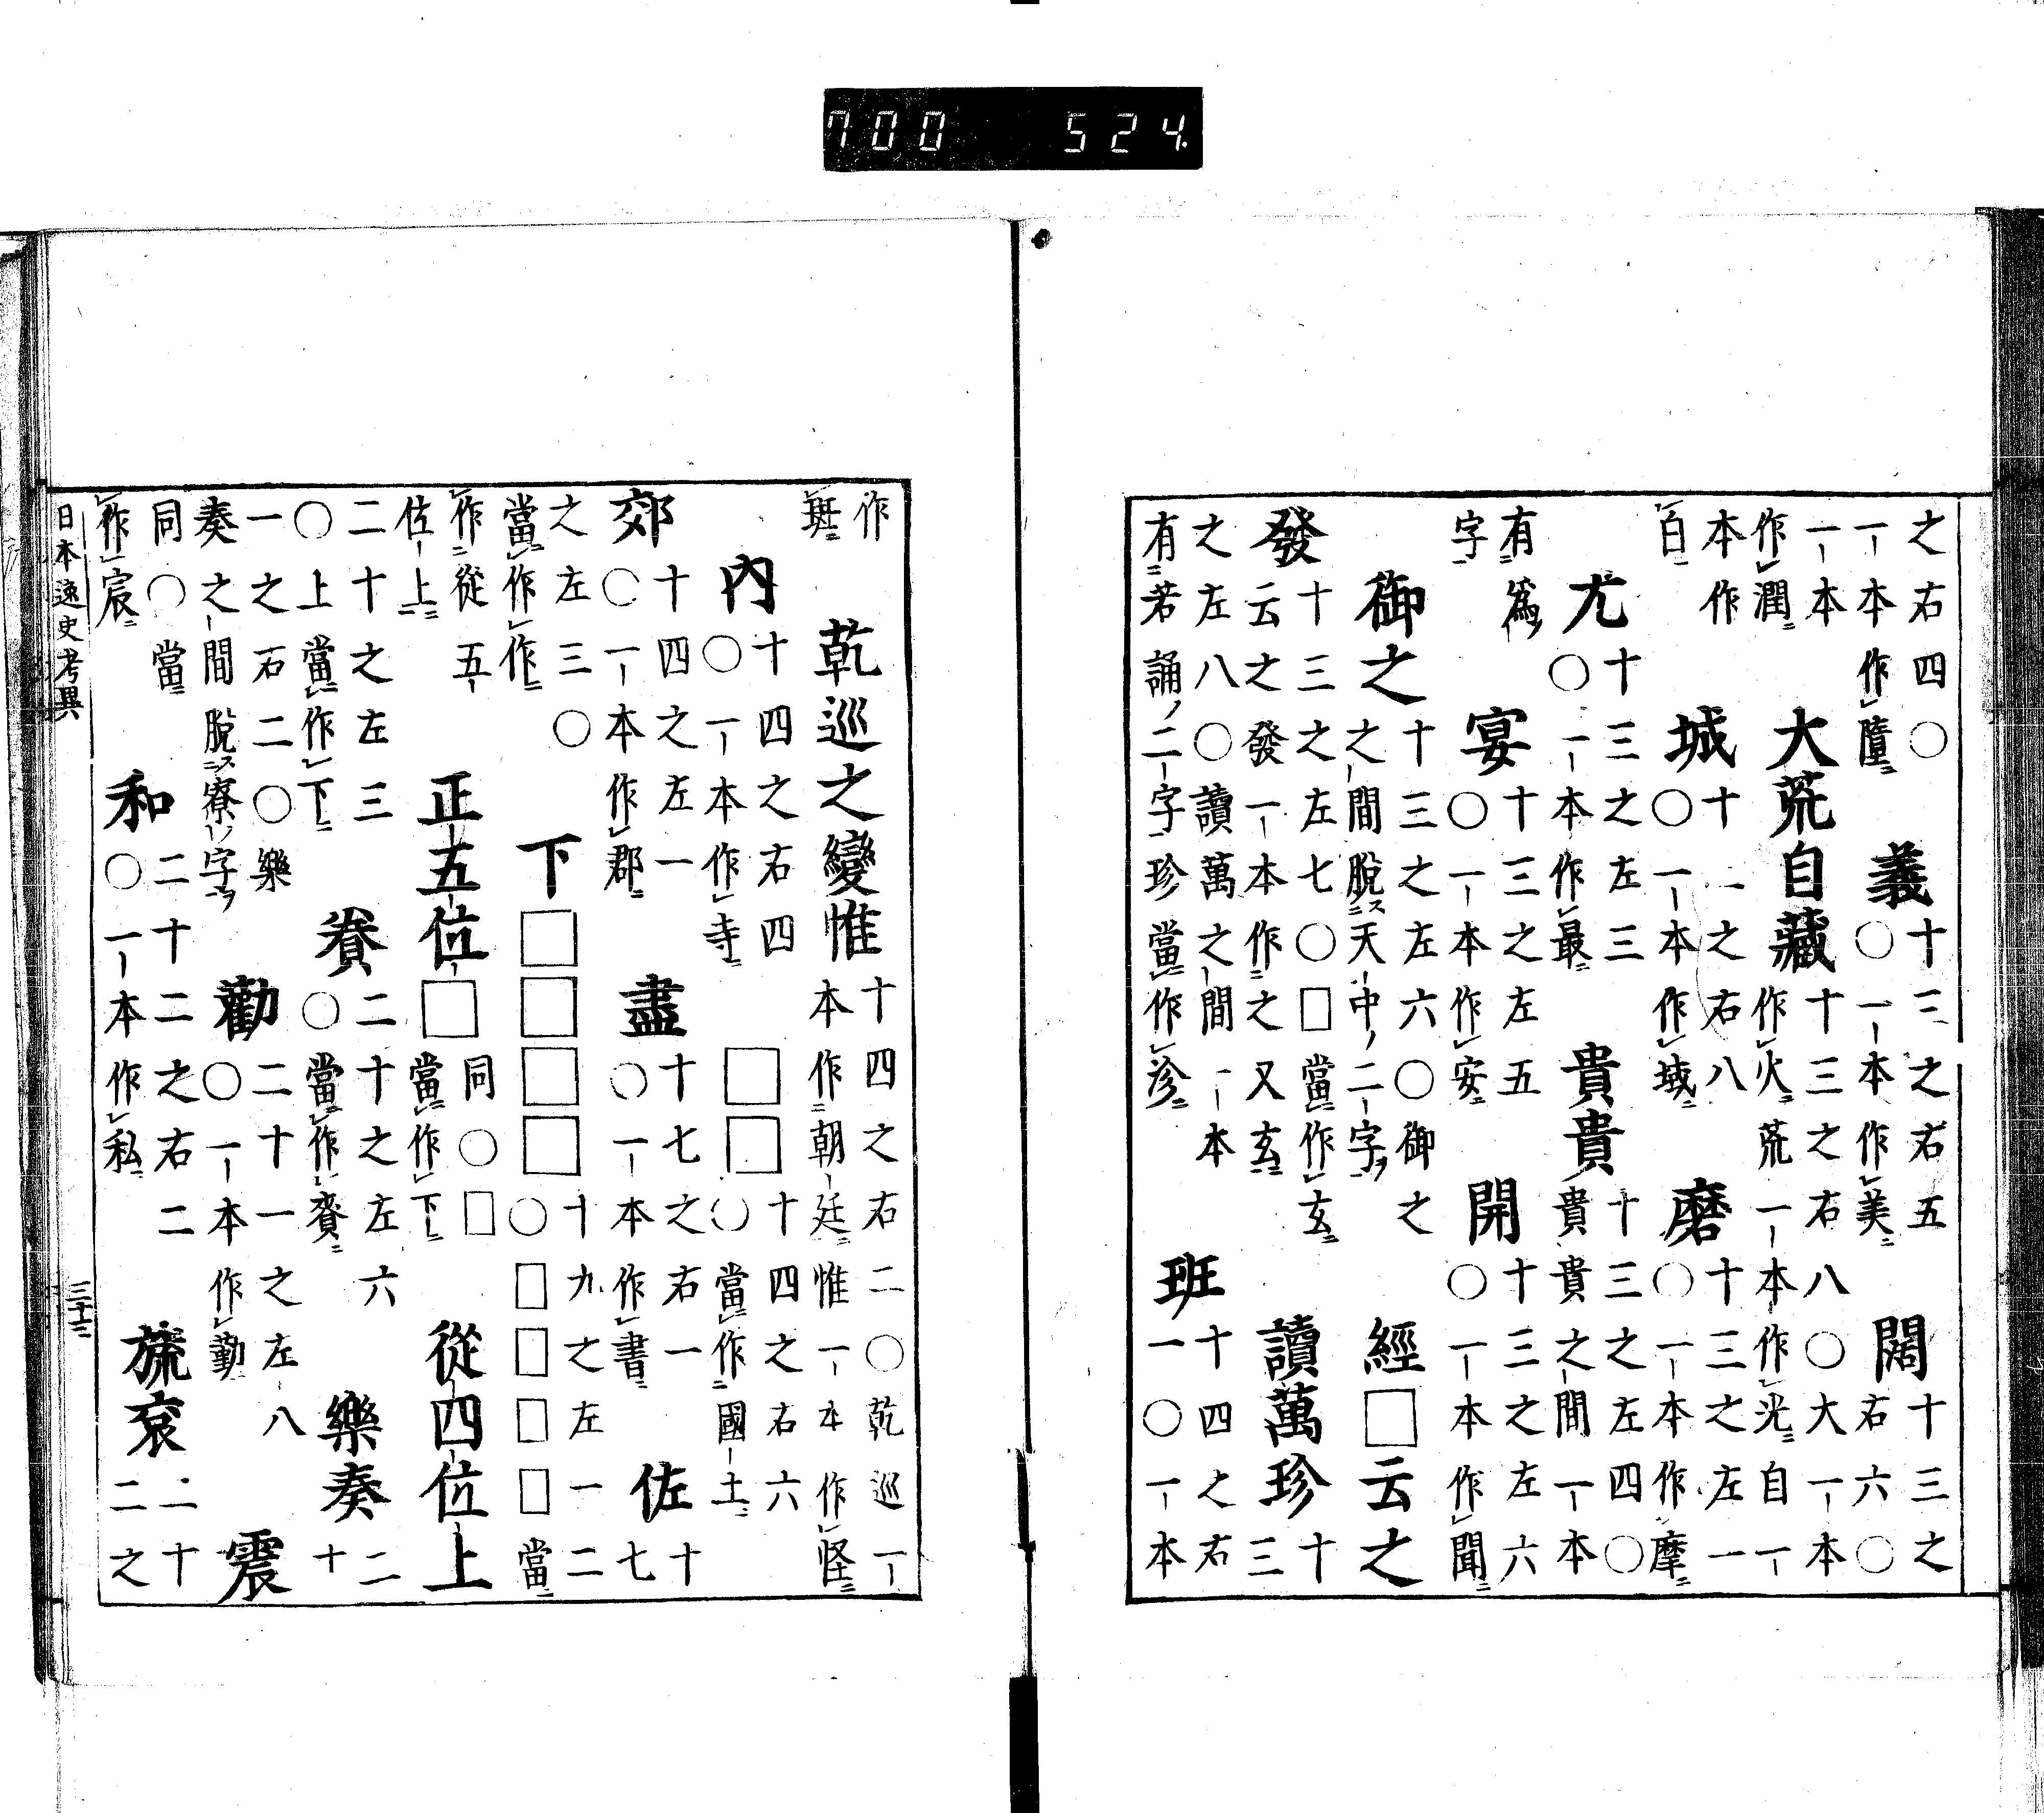 之右四〇一本作隨ニ義十三之右五〇一本作美ニ闊十三之右六〇
一本作潤ニ大荒自藏十三之右八〇大一本作火荒一本作光ニ自一
本作白ニ城十二之右八〇一本作域ニ磨十三之左一〇一本作摩ニ
尤十三之左三〇一本作最ニ貴貴十三之左四〇貴貴之間一本
有爲字宴十三之左五〇一本作安ニ開十三之左六〇一本作聞ニ
御之十三之左六〇御之之間脫ス天中ノ二字ヲ經□云之
發十三之左七〇□當作玄ニ云之發一本作之又玄ニ讀萬珍十三
之左八〇讀萬之間一本有若誦ノ二字珍當作沴ニ班十四之右一〇一本
作斑ニ乾巡之變惟十四之右二〇乾巡一本作朝廷ニ惟一本作怪ニ
內十四之右四〇一本作寺ニ□□十四之右六〇當作國土ニ
郊十四之左一〇一本作郡ニ盡十七之右一〇一本作書ニ佐十七
之左三〇當作作ニ下□□□□十九之左一二〇□□□□當ニ
作從五位上ニ正五位□同〇□當作下ニ從四位上
二十之左三〇上當作下ニ賚二十之左六〇當作賷ニ樂奏二十
一之右二〇樂奏之間脫ス寮ノ字ヲ勸二十一之左八〇一本作勤ニ震
同〇當作宸ニ和二十二之右二〇一本作私ニ旒袞二十二之
日本逸史考異 三十三
700 524